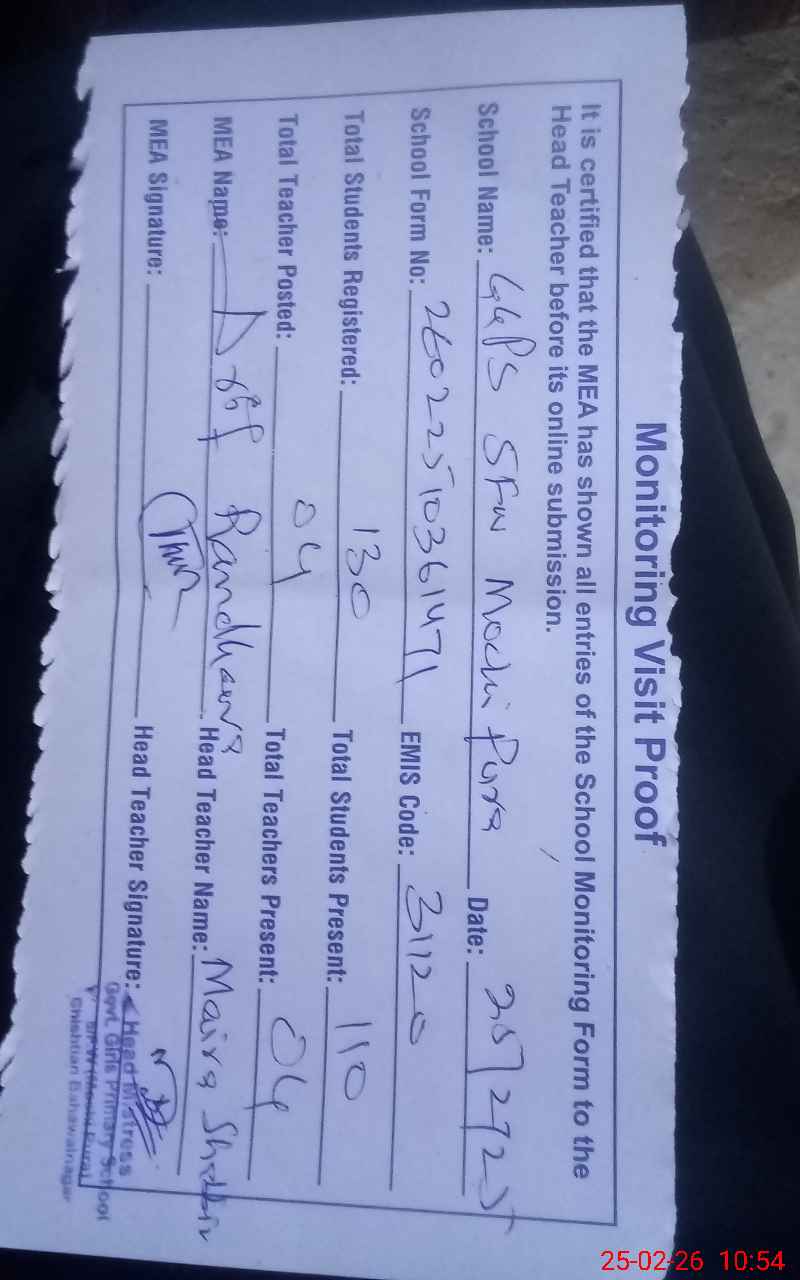 Monitoring Visit Proof
It is certified that the MEA has shown all entries of the School Monitoring Form to the
Head Teacher before its online submission.
School Name: GGPS SFW Mochi Pura Date:
School Form No: 26022510361471 EMIS Code: 31120
Total Students Registered: 130 Total Students Present: 110
Total Teacher Posted: 04 Total Teachers Present: 04
MEA Name: Randhawa Head Teacher Name: Maira Shabbir
MEA Signature: Head Teacher Signature:
Head Mistress
Govt. Girls Primary School
Chishtian Bahawalnagar
25-02-26 10:54